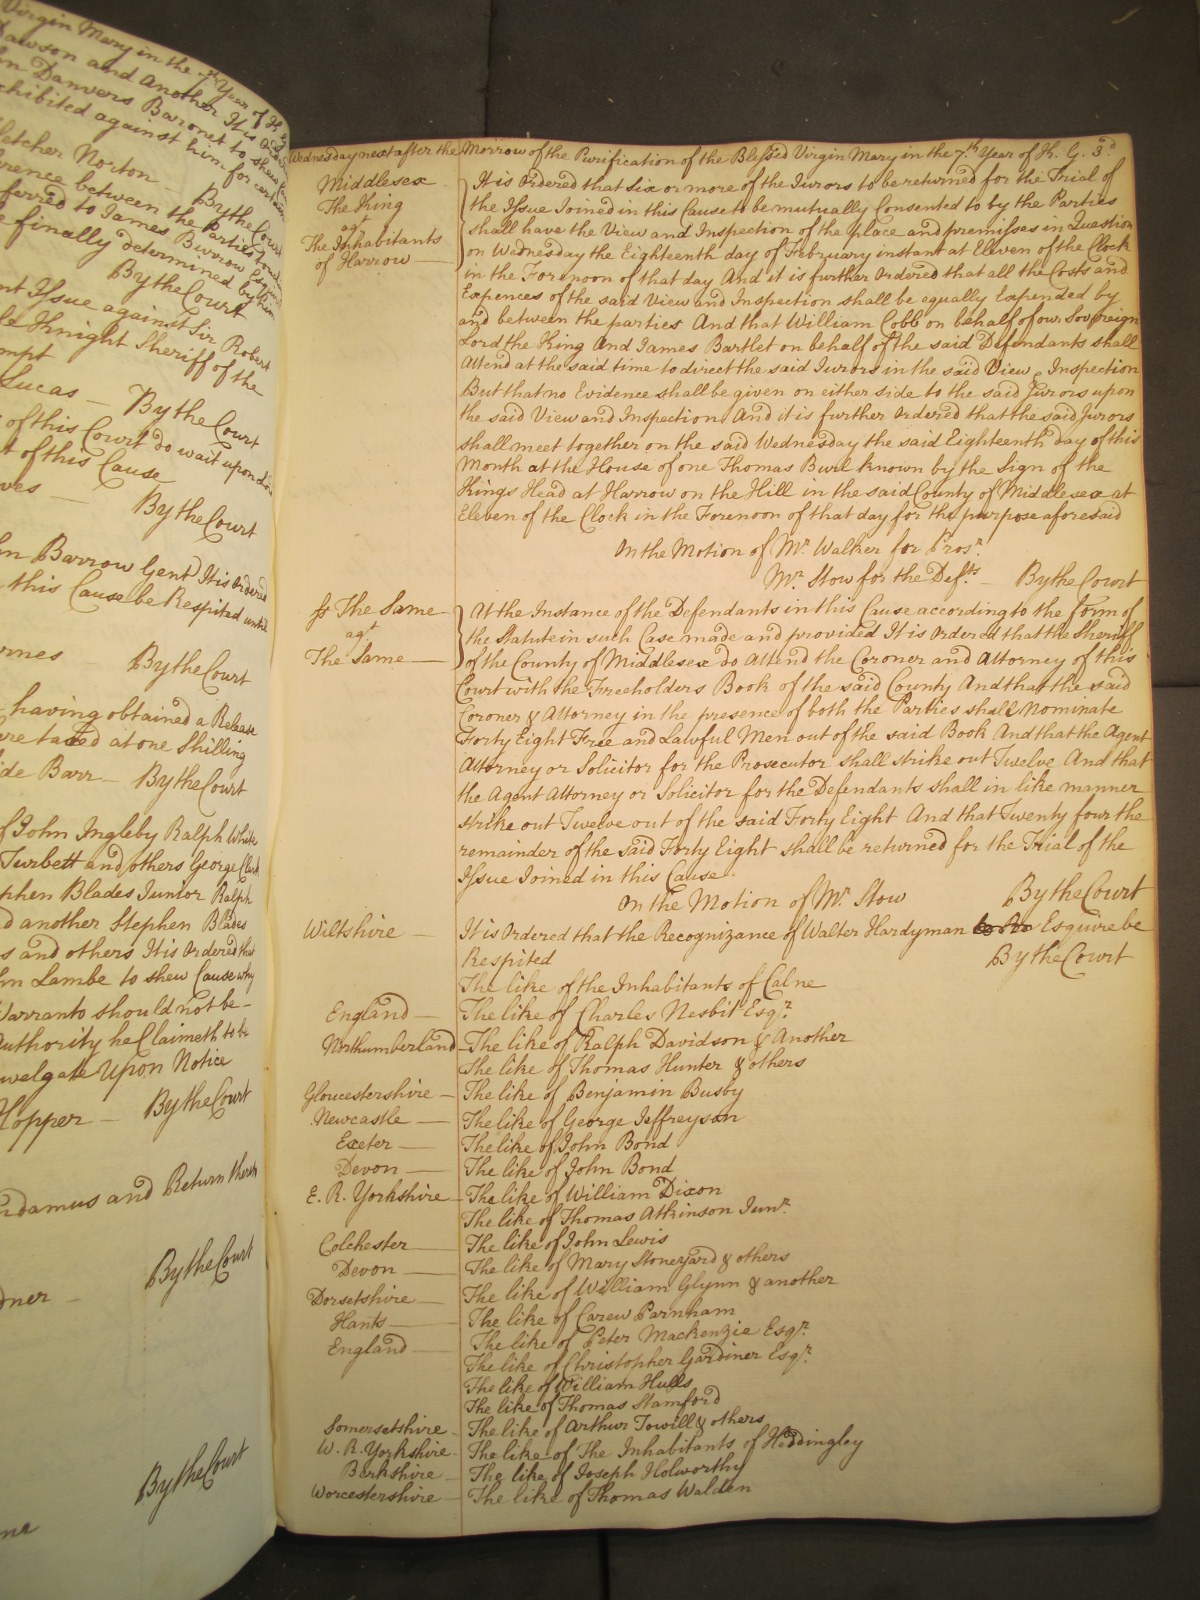 Virgin Mary in the 7th Year of K. G.
Dawson and Another It is Ordered
Danvers Baronet to shew Cause
exhibited against him for certain
Fletcher Norton — By the Court
between the Parties
referred to James Burrow Esquire
finally determined by him
By the Court
Issue against Sir Robert
Knight Sheriff of the
Lucas — By the Court
of this Court do wait upon
of this Cause
By the Court
Barrow Gent It is Ordered
this Cause be Respited until
By the Court
having obtained a Release
taxed at one Shilling
Barr — By the Court
of John Ingleby Ralph White
Turbett and others George Clark
Stephen Blades Junior Ralph
and another Stephen Blades
and others It is Ordered that
John Lambe to shew Cause why
Warranto should not be
Authority he Claimeth to be
upon Notice
Hopper — By the Court
Mandamus and Return
By the Court
By the Court
Wednesday next after the Morrow of the Purification of the Blessed Virgin Mary in the 7.th Year of K. G. 3.d
Middlesex It is Ordered that six or more of the Jurors to be returned for the Trial of
The King the Issue Joined in this Cause to be mutually Consented to by the Parties
agt shall have the View and Inspection of the place and premisses in Question
The Inhabitants on Wednesday the Eighteenth day of February instant at Eleven of the Clock
of Harrow — in the Forenoon of that day And it is further Ordered that all the Costs and
Expences of the said View and Inspection shall be equally Expended by
and between the parties And that William Cobb on behalf of our Sovereign
Lord the King And James Bartlet on behalf of the said Defendants shall
Attend at the said time to direct the said Jurors in the said View & Inspection
But that no Evidence shall be given on either side to the said Jurors upon
the said View and Inspection And it is further Ordered that the said Jurors
shall meet together on the said Wednesday the said Eighteenth day of this
Month at the House of one Thomas Burl known by the Sign of the
Kings Head at Harrow on the Hill in the said County of Middlesex at
Eleven of the Clock in the Forenoon of that day for the purpose aforesaid
On the Motion of Mr. Walker for Prosr.
Mr. Stow for the Defts. — By the Court
The Same — At the Instance of the Defendants in this Cause according to the form of
agt the Statute in such Case made and provided It is Ordered that the Sheriff
The Same — of the County of Middlesex do Attend the Coroner and Attorney of this
Court with the Freeholders Book of the said County And that the said
Coroner & Attorney in the presence of both the Parties shall Nominate
Forty Eight Free and Lawful Men out of the said Book And that the Agent
Attorney or Solicitor for the Prosecutor shall strike out Twelve And that
the Agent Attorney or Solicitor for the Defendants shall in like manner
strike out Twelve out of the said Forty Eight And that Twenty four the
remainder of the said Forty Eight shall be returned for the Trial of the
Issue Joined in this Cause.
On the Motion of Mr. Stow By the Court
Wiltshire — It is Ordered that the Recognizance of Walter Hardyman Esquire be
Respited By the Court
The like of the Inhabitants of Calne
England — The like of Charles Nesbit Esqr.
Northumberland — The like of Ralph Davidson & Another
The like of Thomas Hunter & others
Gloucestershire — The like of Benjamin Busby
Newcastle — The like of George Jeffreyson
Exeter — The like of John Bond
Devon — The like of John Bond
E. R. Yorkshire — The like of William Dixon
The like of Thomas Atkinson Junr.
Colchester — The like of John Lewis
Devon — The like of Mary Stoneyard & others
Dorsetshire — The like of William Glynn & another
Hants — The like of Carew Parnham
England — The like of Peter Mackenzie Esqr.
The like of Christopher Gardiner Esqr.
The like of William Hulls
The like of Thomas Stamford
Somersetshire — The like of Arthur Towill & others
W. R. Yorkshire — The like of The Inhabitants of Heddingley
Berkshire — The like of Joseph Holworthy
Worcestershire — The like of Thomas Walden